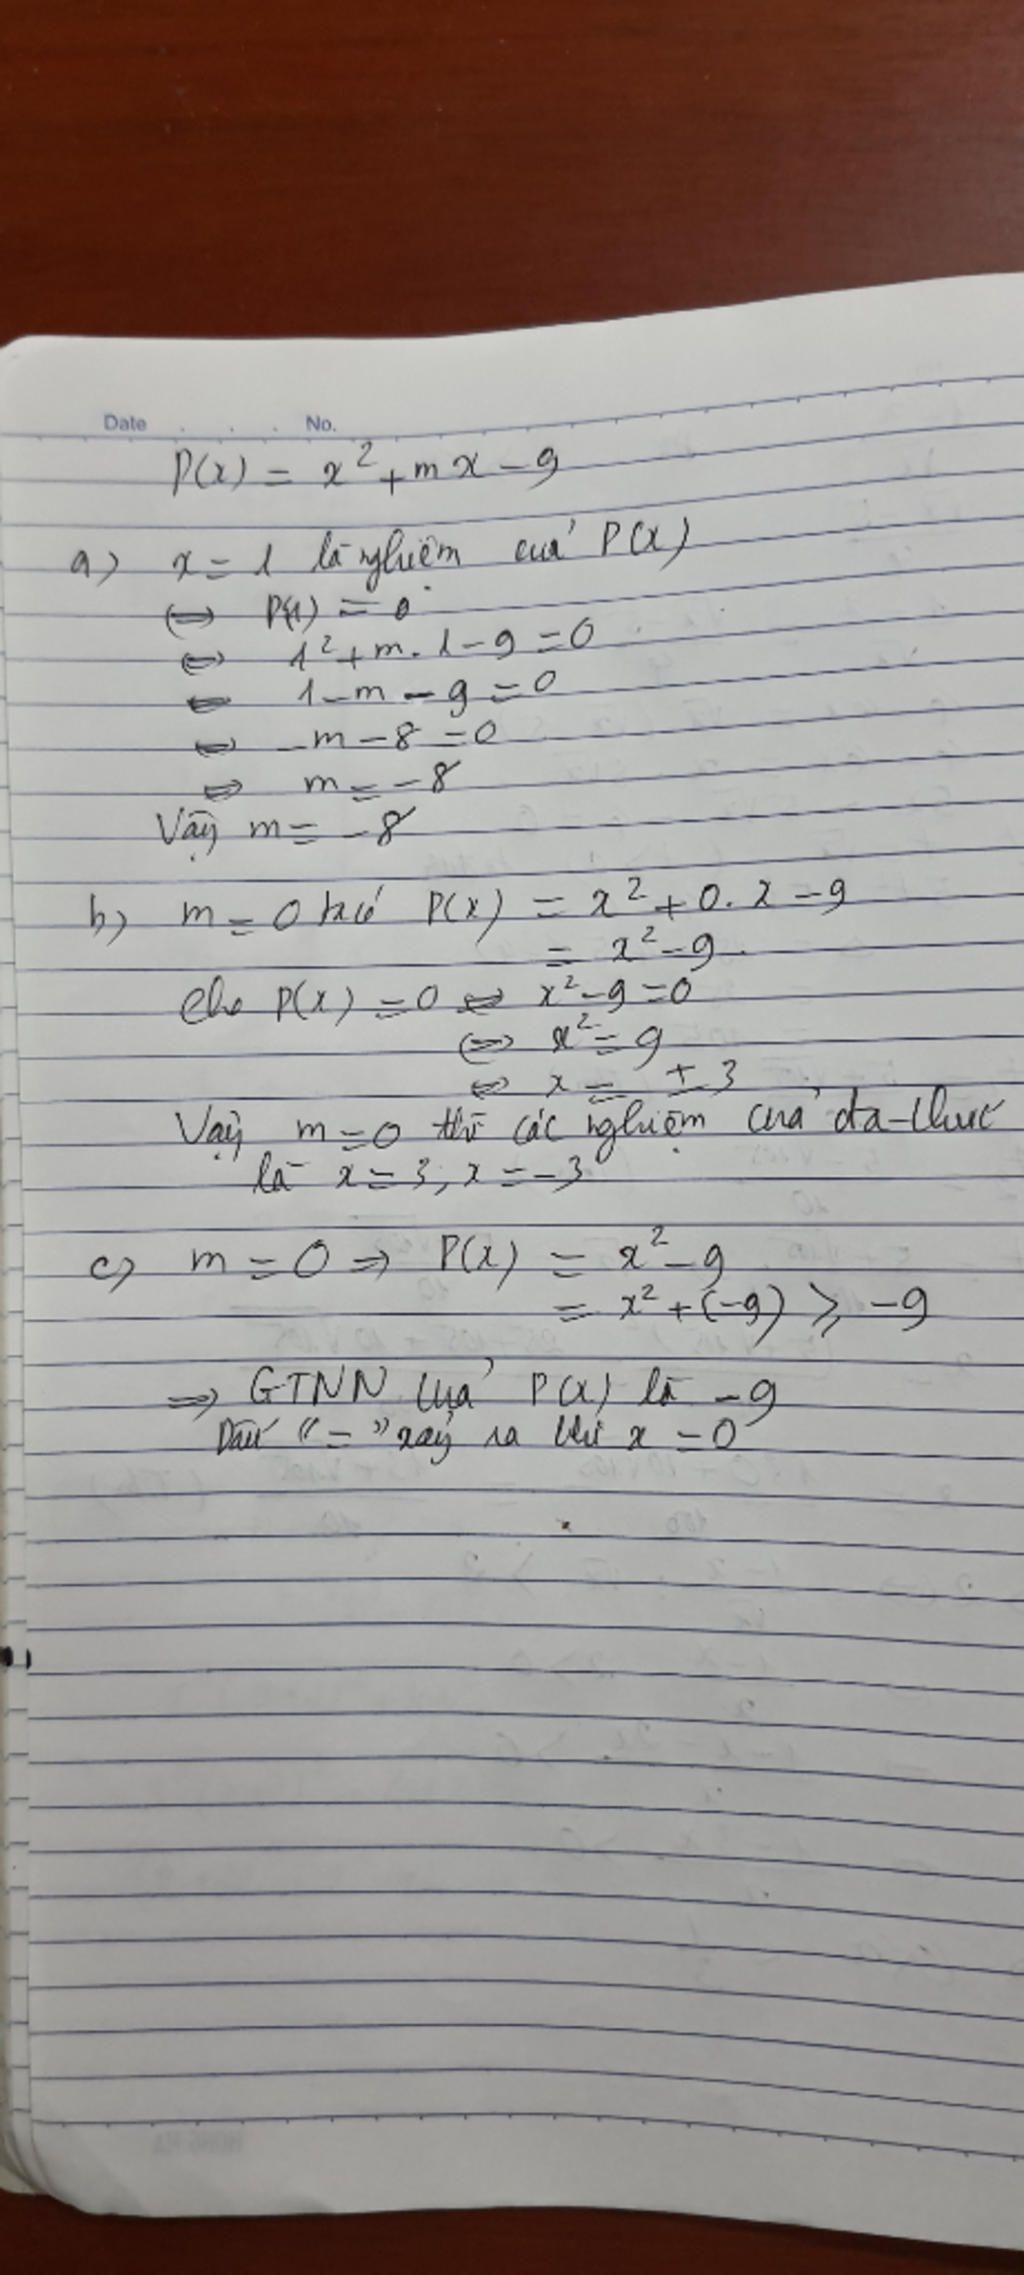 Date . . . No.
P(x) = x² + mx - 9
a) x = 1 là nghiệm của P(x)
⇔ P(1) = 0
⇔ 1² + m. 1 - 9 = 0
⇔ 1 - m - 9 = 0
⇔ - m - 8 = 0
⇔ m = - 8
Vậy m = - 8
b) m = 0 P(x) = x² + 0. x - 9
= x² - 9
Cho P(x) = 0 ⇔ x² - 9 = 0
⇔ x² = 9
⇔ x = ± 3
Vậy m = 0 thì các nghiệm của đa thức
là x = 3, x = -3
c) m = 0 ⇒ P(x) = x² - 9
= x² + (-9) ≥ -9
⇒ GTNN của P(x) là -9
Dấu "=" xảy ra khi x = 0